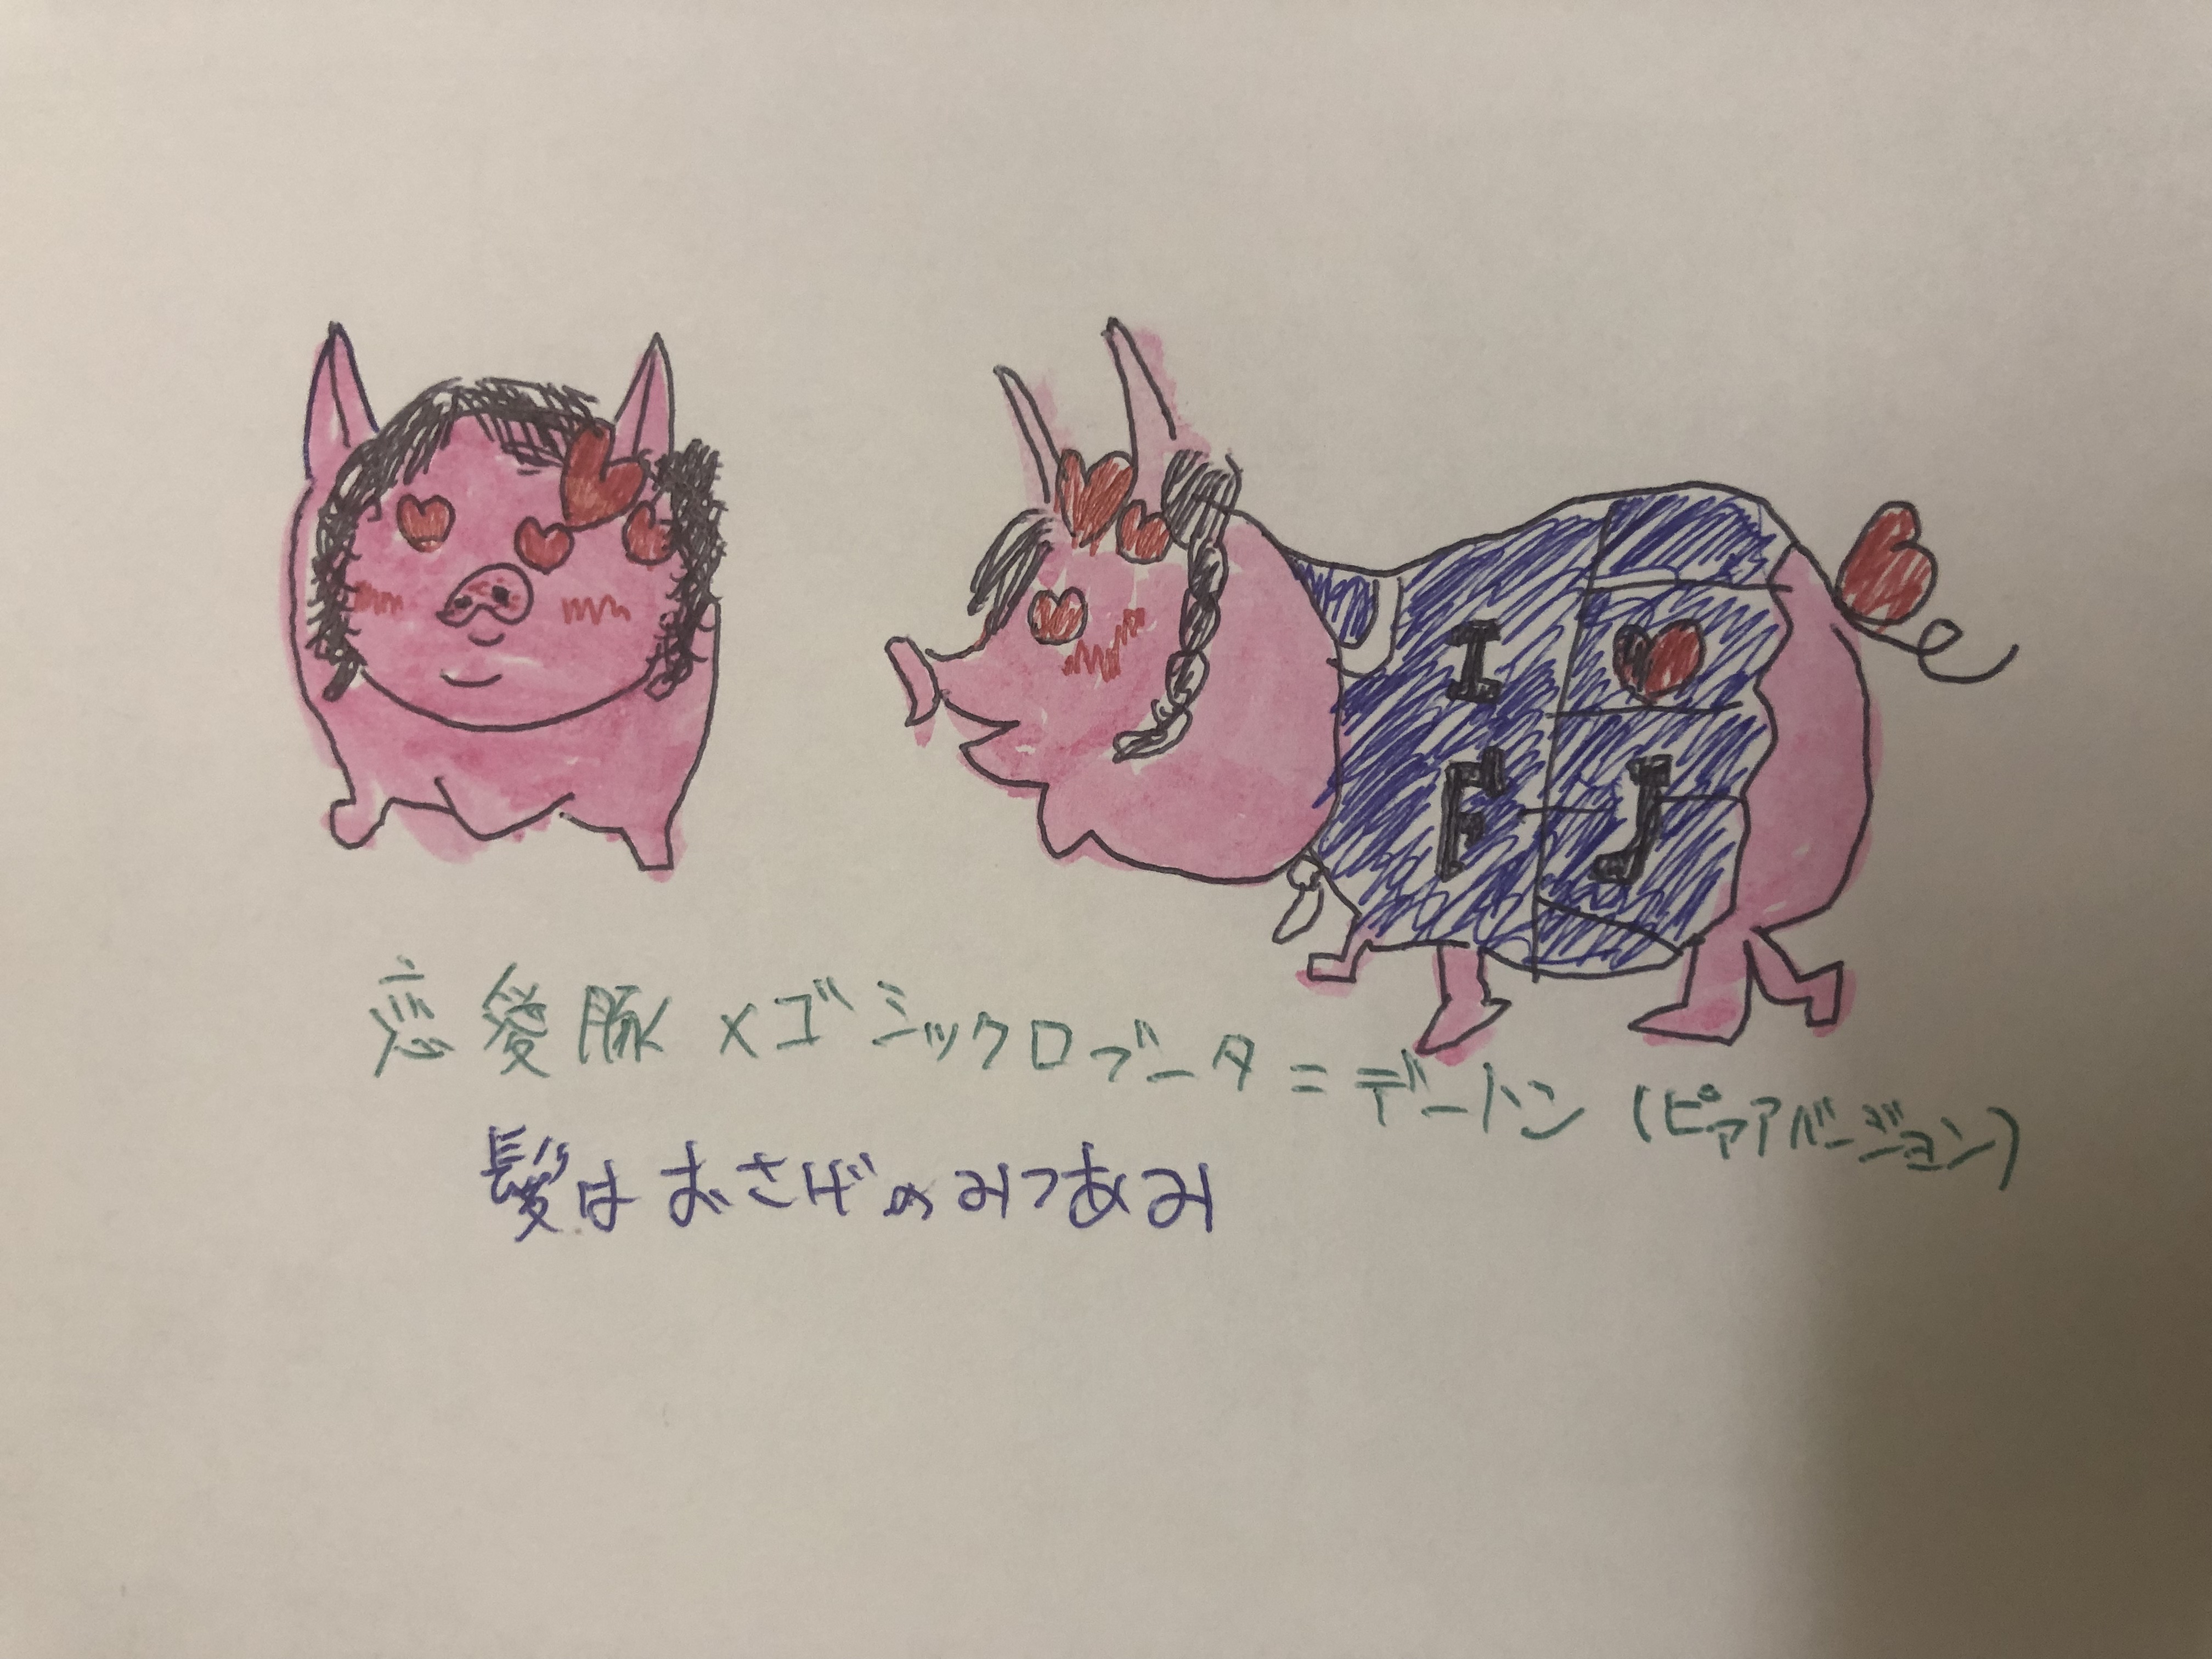 I
F J
恋愛豚×ゴシックロブータ=デートン(ピュアバージョン)
髪はおさげのみつあみ